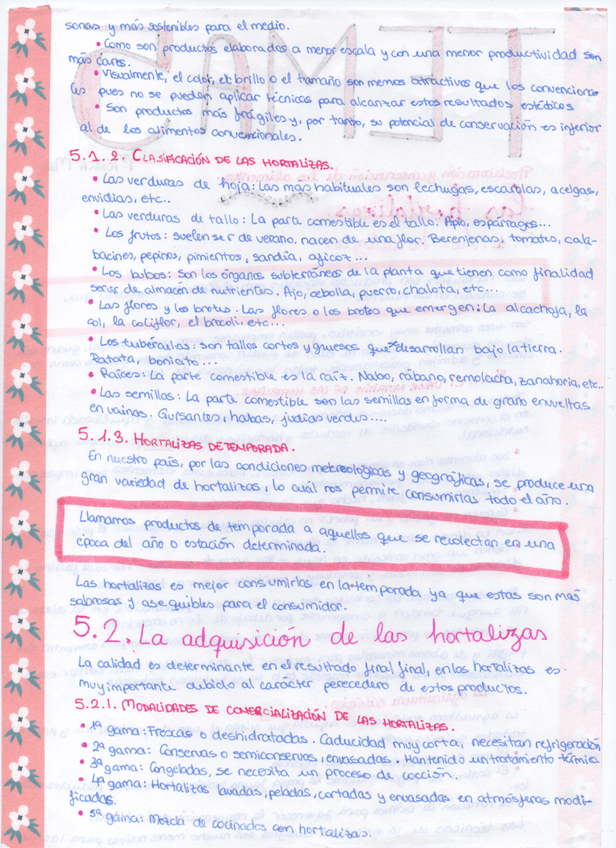 sonas y más sostenibles para el medio.
• Como son productos elaborados a menor escala y con una menor productividad son
más caros.
• Visualmente, el color, el brillo o el tamaño son menos atractivos que los convenciona-
les pues no se pueden aplicar técnicas para alcanzar estos resultados estéticos
• Son productos más frágiles y, por tanto, su potencial de conservación es inferior
al de los alimentos convencionales.
5.1.2. CLASIFICACIÓN DE LAS HORTALIZAS.
• Las verduras de hoja: Las más habituales son lechugas, escarolas, acelgas,
envidias, etc...
• Las verduras de tallo: La parte comestible es el tallo. Apio, espárragos...
• Los frutos: suelen ser de verano, nacen de una flor. Berenjenas, tomates, cala-
bacines, pepinos, pimientos, sandía, ajicoz...
• Los bulbos: Son los órganos subterráneos de la planta que tienen como finalidad
servir de almacén de nutrientes. Ajo, cebolla, puerro, chalota, etc...
• Las flores y los brotes. Las flores o los brotes que emergen: La alcachofa, la
col, la coliflor, el brócoli. etc...
• Los tubérculos: son tallos cortos y gruesos que desarrollan bajo la tierra.
Patata, boniato...
• Raíces: La parte comestible es la raíz. Nabo, rábano, remolacha, zanahoria, etc...
• Las semillas: La parte comestible son las semillas en forma de grano envueltas
en vainas. Guisantes, habas, judías verdes....
5.1.3. HORTALIZAS DE TEMPORADA.
En nuestro país, por las condiciones meteorológicas y geográficas, se produce una
gran variedad de hortalizas, lo cuál nos permite consumirlas todo el año.
Llamamos productos de temporada a aquellos que se recolectan en una
época del año o estación determinada.
Las hortalizas es mejor consumirlas en la temporada ya que estas son más
sabrosas y asequibles para el consumidor.
5.2. La adquisición de las hortalizas
La calidad es determinante en el resultado final final, en las hortalizas es
muy importante debido al carácter perecedero de estos productos.
5.2.1. MODALIDADES DE COMERCIALIZACIÓN DE LAS HORTALIZAS.
• 1ª gama: Frescas o deshidratadas. Caducidad muy corta, necesitan refrigeración
• 2ª gama: Conservas o semiconservas, envasadas. Mantenido un tratamiento térmico.
• 3ª gama: Congeladas, se necesita un proceso de cocción.
• 4ª gama: Hortalizas lavadas, peladas, cortadas y envasadas en atmósferas modi-
ficadas.
• 5ª gama: Mezcla de cocinados con hortalizas.